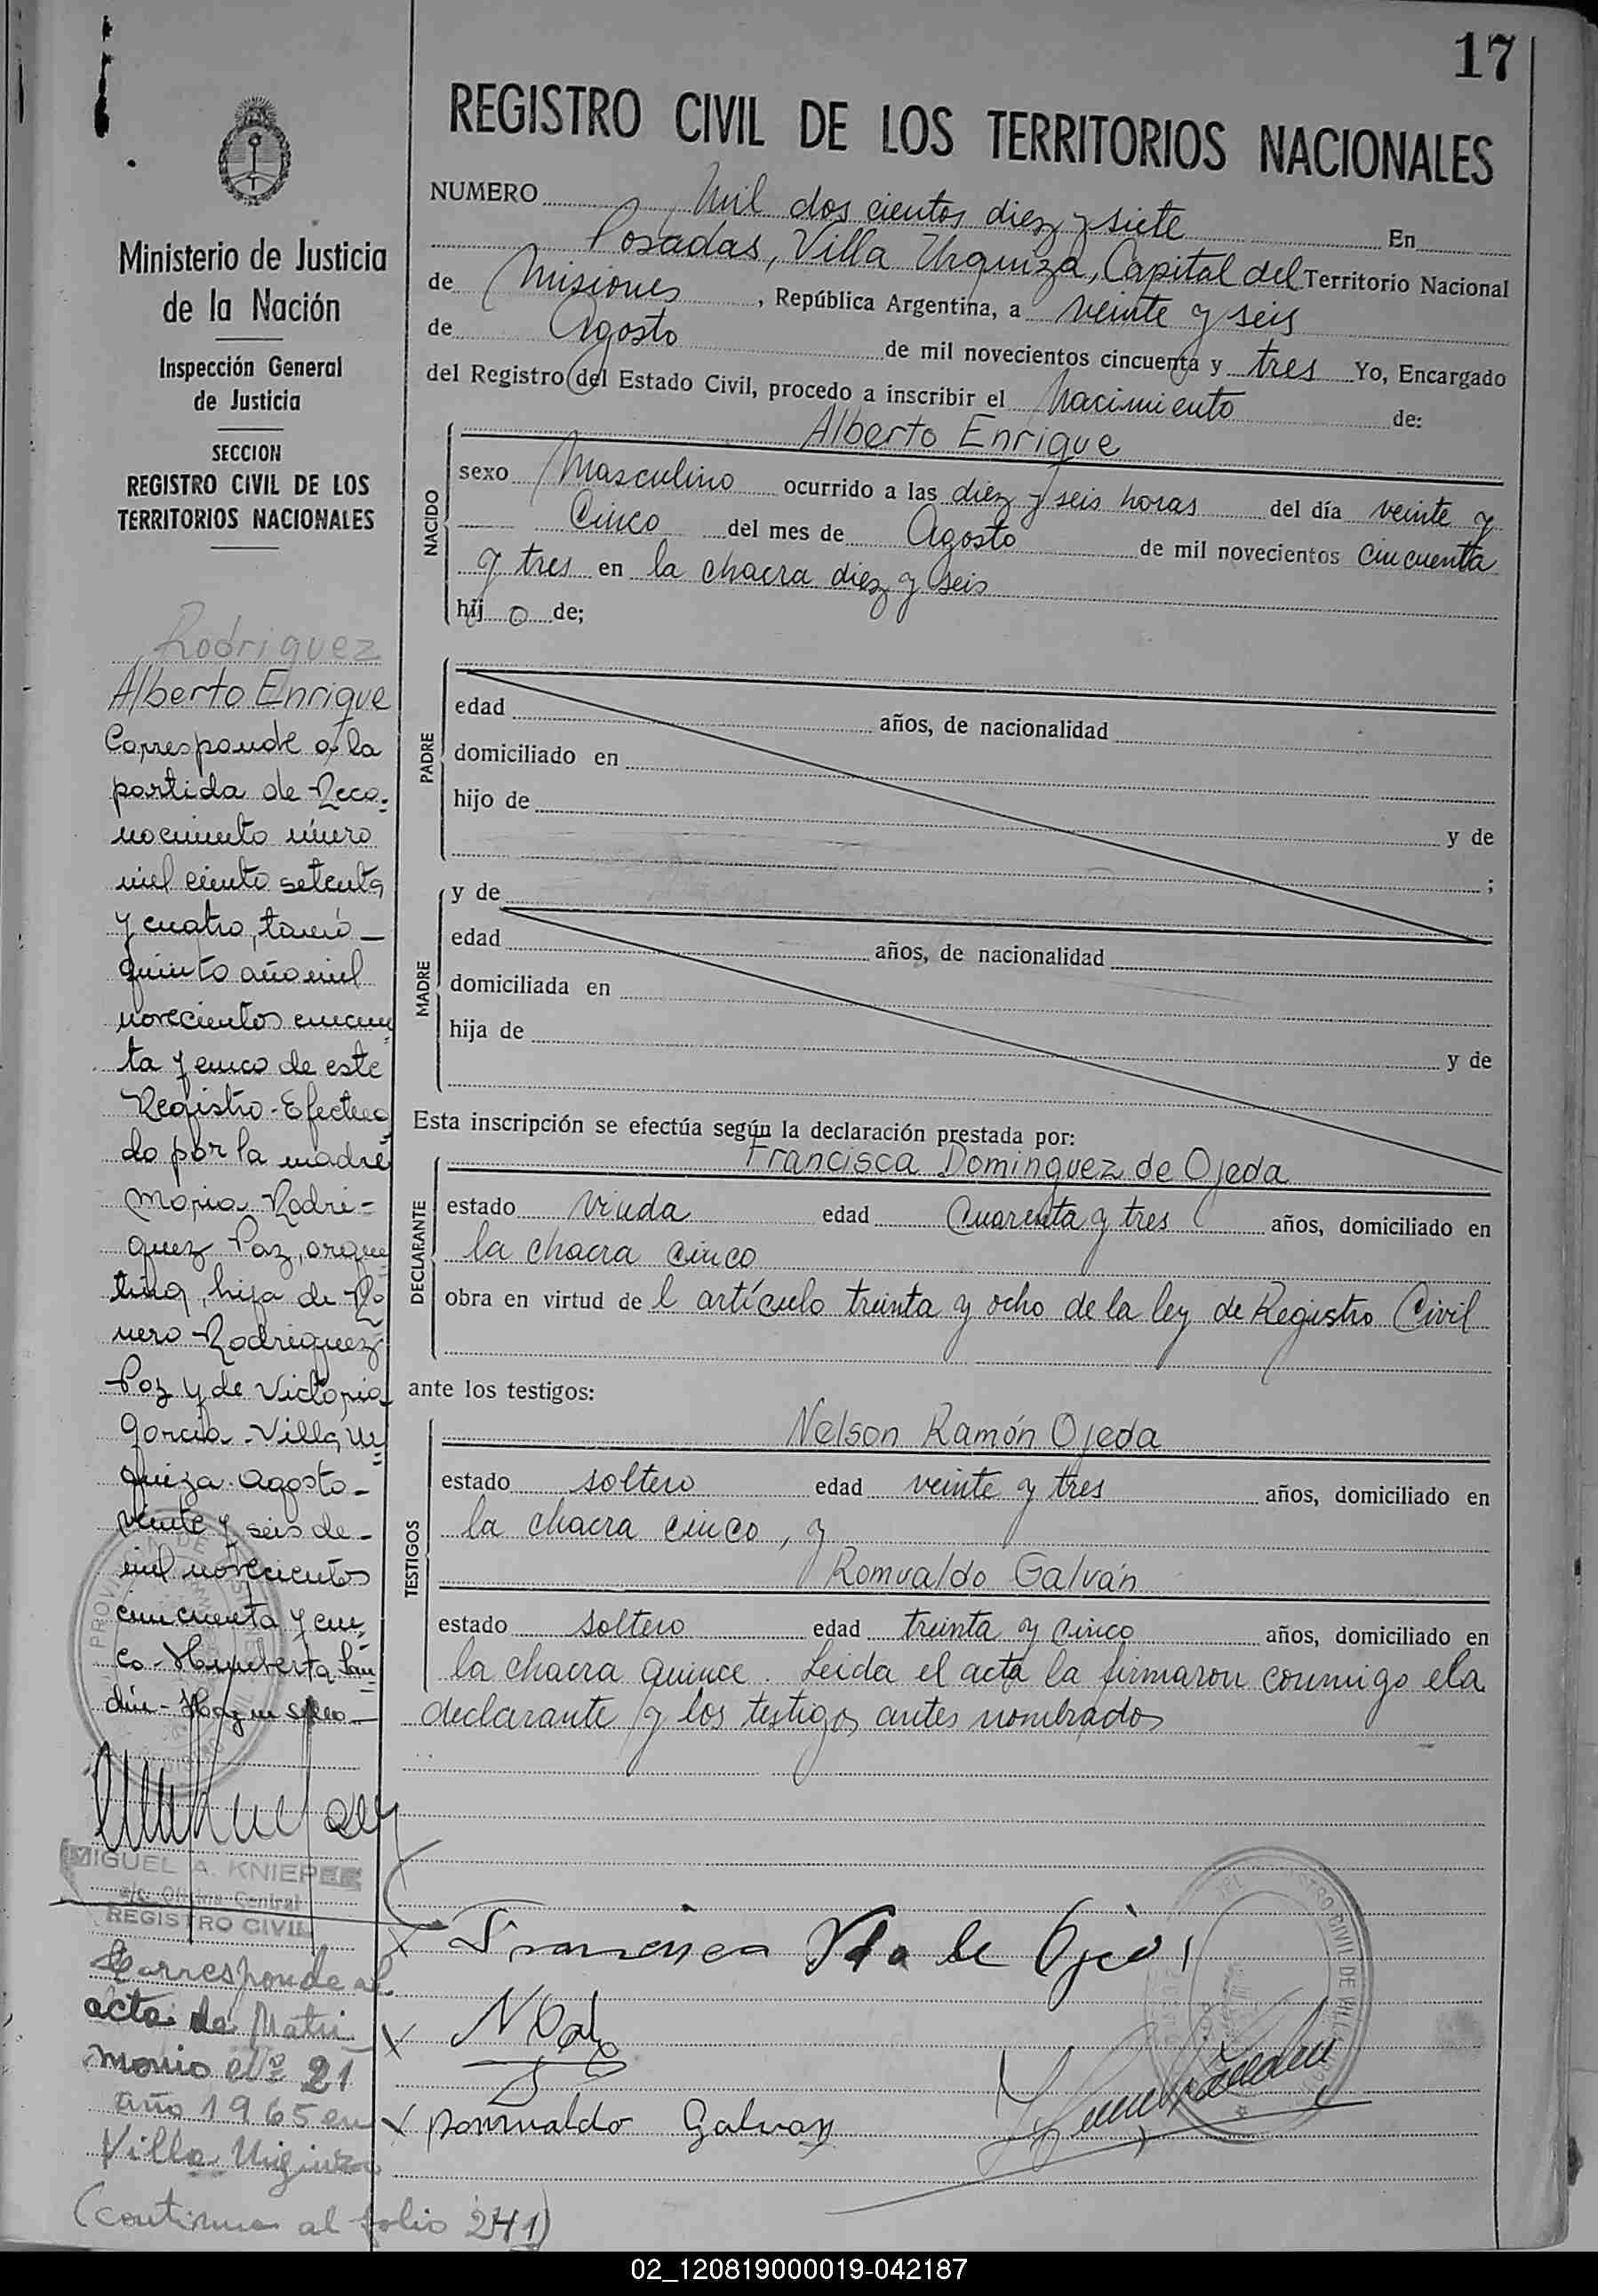 17
REGISTRO CIVIL DE LOS TERRITORIOS NACIONALES
Ministerio de Justicia
de la Nación
Inspección General
de Justicia
SECCION
REGISTRO CIVIL DE LOS
TERRITORIOS NACIONALES
NUMERO Mil dos cientos diez y siete En
Posadas, Villa Urquiza, Capital del Territorio Nacional
de Misiones, República Argentina, a veinte y seis
de Agosto de mil novecientos cincuenta y tres Yo, Encargado
del Registro del Estado Civil, procedo a inscribir el Nacimiento de:
Alberto Enrique
NACIDO
sexo Masculino ocurrido a las diez y seis horas del día veinte y
Cinco del mes de Agosto de mil novecientos cincuenta
y tres en la chacra diez y seis
hij o de;
PADRE
edad años, de nacionalidad
domiciliado en
hijo de
y de
;
MADRE
y de
edad años, de nacionalidad
domiciliada en
hija de
y de
Esta inscripción se efectúa según la declaración prestada por:
Francisca Dominguez de Ojeda
DECLARANTE
estado viuda edad cuarenta y tres años, domiciliado en
la chacra cinco
obra en virtud de l artículo treinta y ocho de la ley de Registro Civil
ante los testigos:
TESTIGOS
Nelson Ramón Ojeda
estado soltero edad veinte y tres años, domiciliado en
la chacra cinco, y
Romualdo Galván
estado soltero edad treinta y cinco años, domiciliado en
la chacra quince. Leida el acta la firmaron conmigo ela
declarante y los testigos antes nombrados
Rodriguez
Alberto Enrique
Corresponde a la
partida de Reco-
nocimiento número
mil ciento setenta
y cuatro, tomo
quinto año mil
novecientos cincuen
ta y cinco de este
Registro - Efectua
do por la madre
Maria Rodri-
guez Paz, argen
tina, hija de Ro
mero Rodriguez
Paz y de Victoria
Garcia - Villa Ur
quiza - Agosto -
veinte y seis de -
mil novecientos
cincuenta y cin
co -
MIGUEL A. KNIEPER
a/c Oficina Central
REGISTRO CIVIL
Corresponde al
acta de Matri
monio Nº 21
año 1965 en
Villa Urquiza
(continua al folio 241)
X Francisca Vda de Ojeda
X
X Romualdo Galvan
02_120819000019-042187